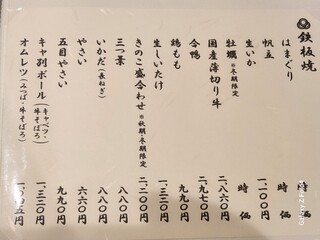 鉄板焼
はまぐり 時価
帆立 時価
生いか 一、一〇〇円
牡蠣 ※冬期限定 時価
国産薄切り牛 二、八六〇円
合鴨 二、九七〇円
鶏もも 九九〇円
生しいたけ 一、三二〇円
きのこ盛合わせ ※秋期・冬期限定 二、二〇〇円
三つ葉 八八〇円
いかだ(長ねぎ) 八八〇円
やさい 六六〇円
五目やさい 九九〇円
キャ列ボール(キャベツ・牛そぼろ) 一、三二〇円
オムレツ(みつば・牛そぼろ)